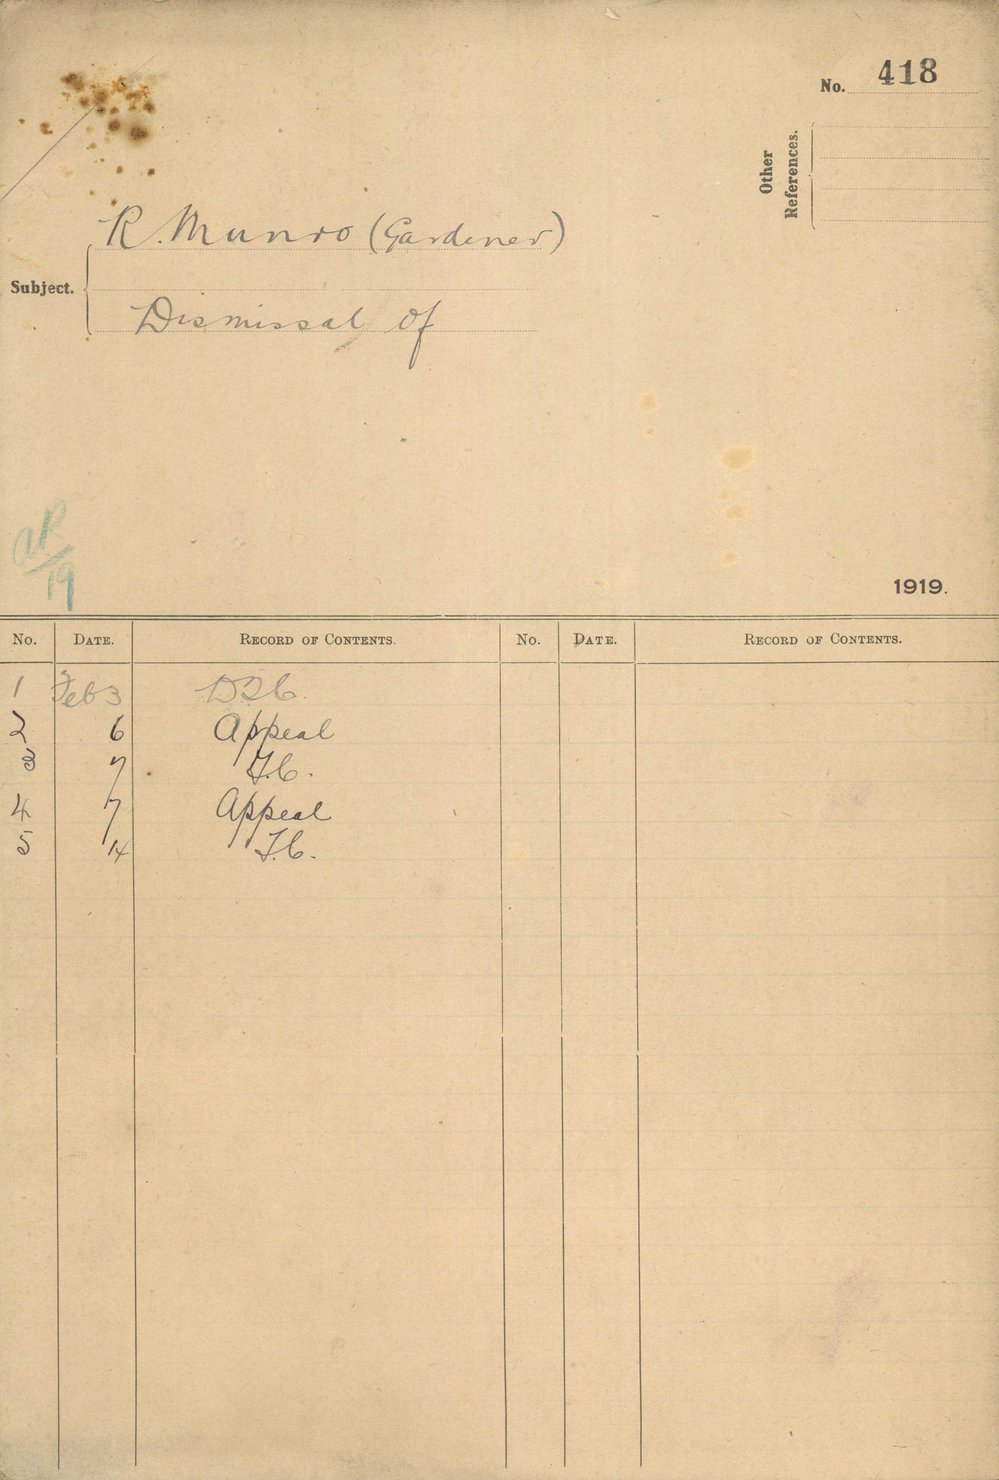 No. 418
Other
References.
R. Munro (Gardener)
Subject.
Dismissal of
AR
19
1919.
No. DATE. RECORD OF CONTENTS. No. DATE. RECORD OF CONTENTS.
1 Feb 3
2 6 Appeal
3 7 T.C.
4 7 Appeal
5 14 T.C.